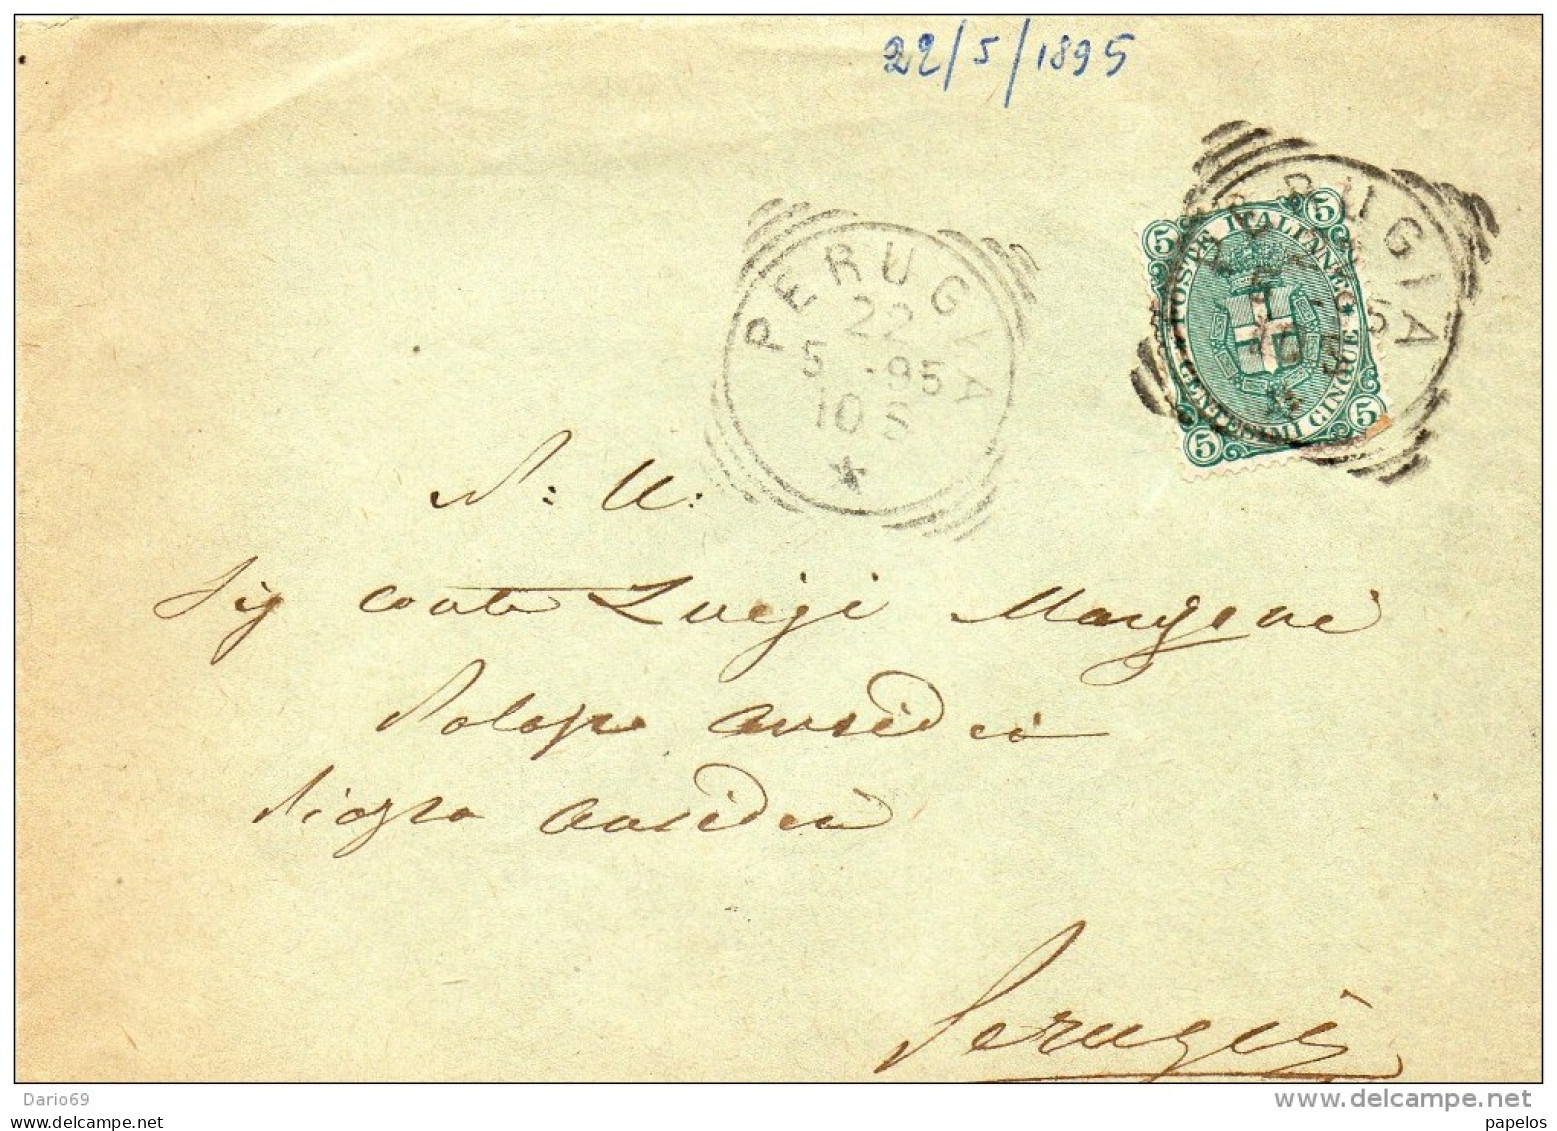 22/5/1895
PERUGIA
5 POSTE ITALIANE 5
5 CENTESIMI CINQUE 5
PERUGIA
22
5 .-95
10 S
*
N: U:
Sig Conte Luigi
Palazzo Ansidei
Piazza Ansidei
Perugia
Dario69
www.delcampe.net
papelos